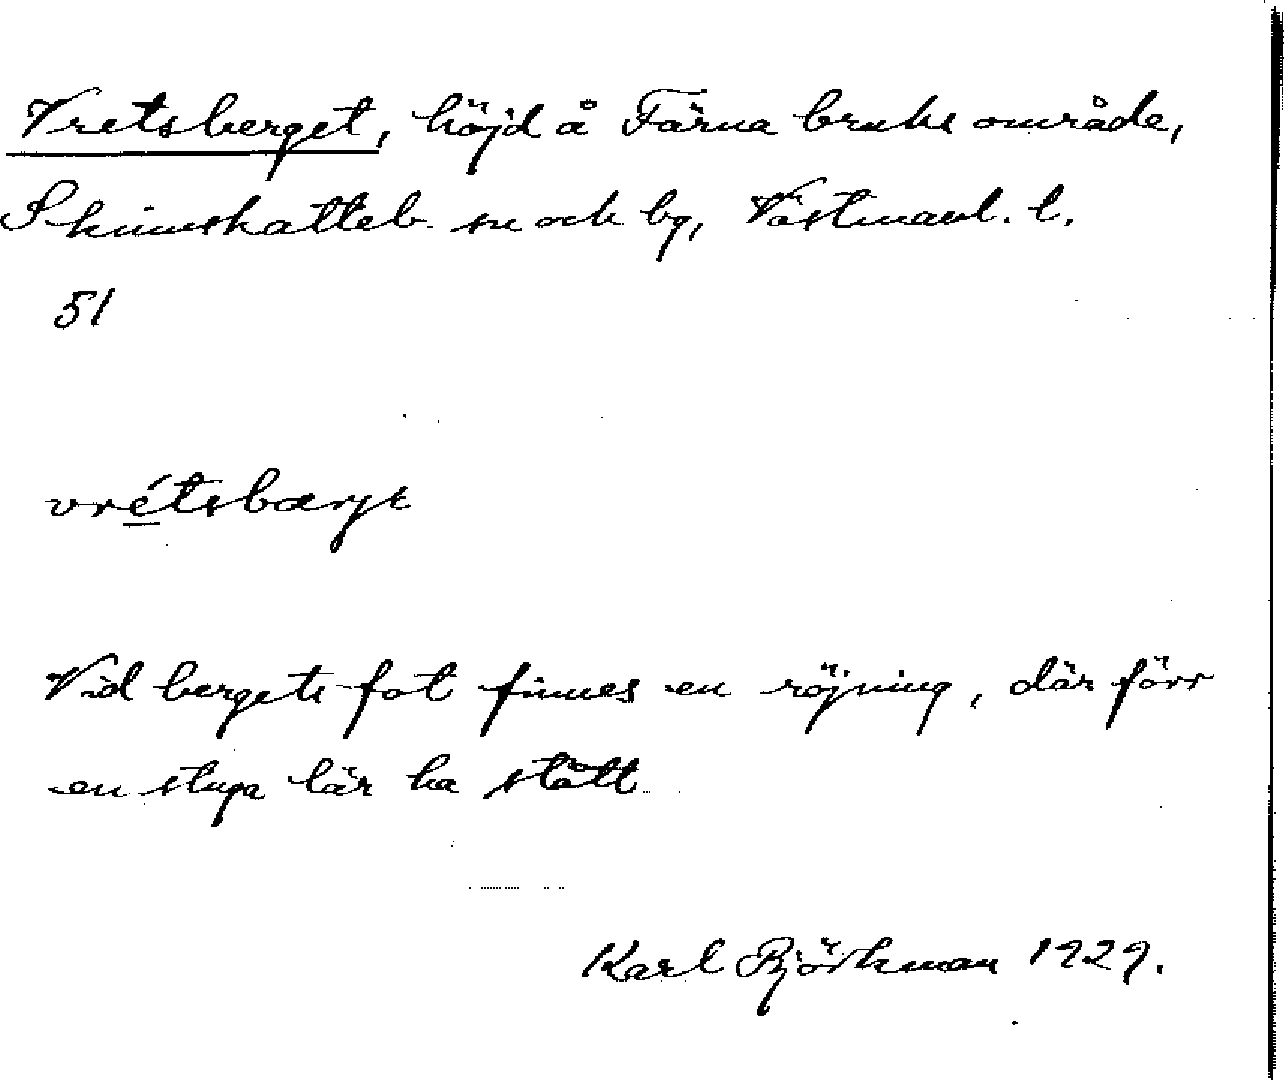 Vretsberget, höjd å Färna bruks område,
Skinnskatteb. sn och bg, Västmanl. l.
51
vrétsbærjε
Vid bergets fot finnes en röjning, där förr
en stuga lär ha stått
Karl Björkman 1929.